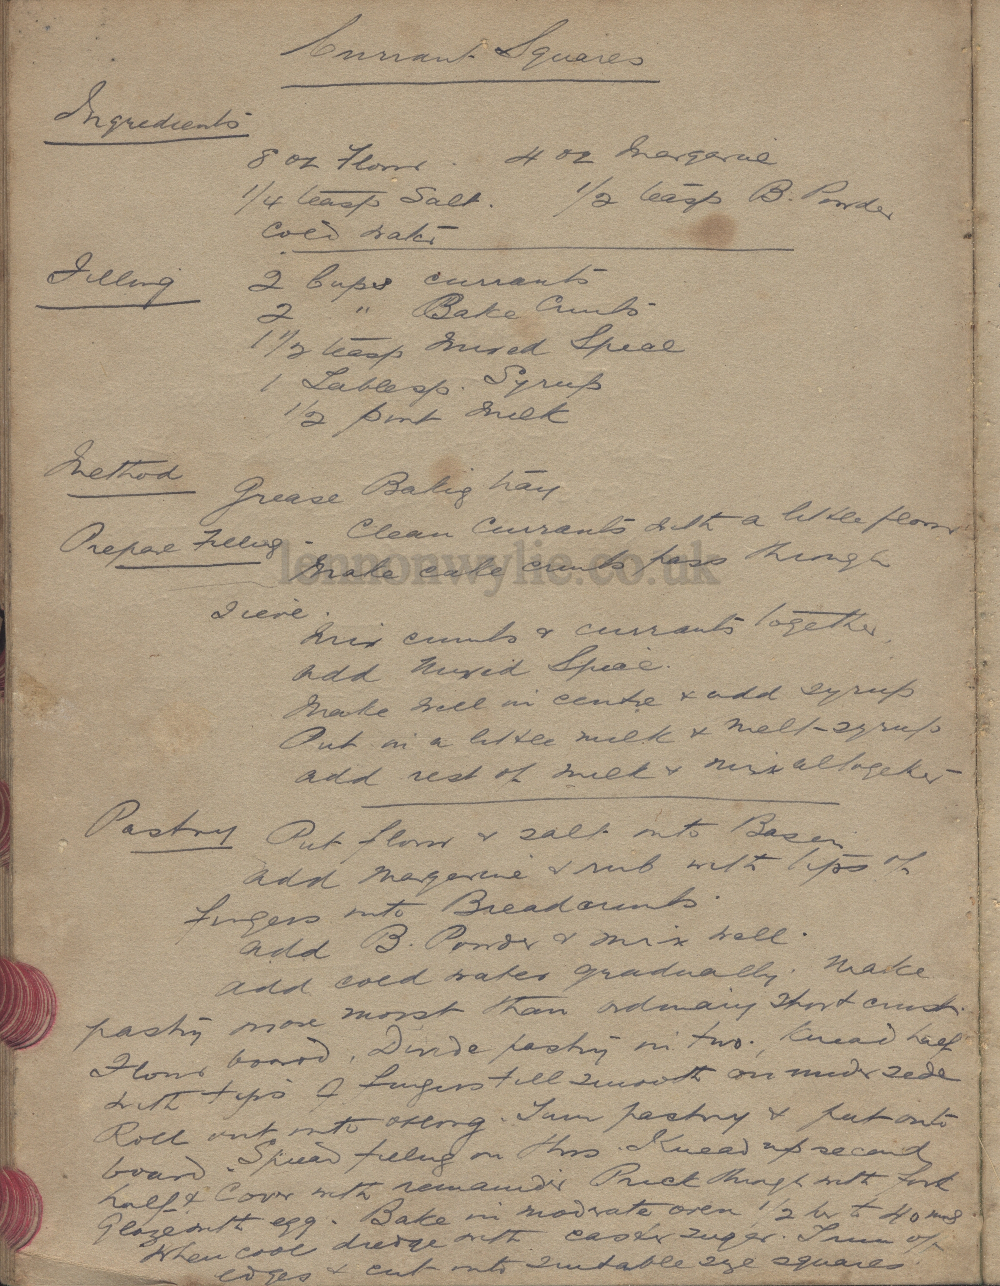 Currant Squares
Ingredients
8 oz Flour. 4 oz Margarine
1/4 teasp Salt. 1/2 teasp B. Powder
Cold water
Filling 2 Cups currants
2 " Bake Crumbs
1 1/2 teasp Mixed Spice
1 Tablesp. Syrup
1/2 pint Milk
Method Grease Baking tray
Prepare Filling - Clean Currants with a little flour
Make cake crumbs pass through
sieve.
lennonwylie.co.uk
Mix crumbs & currants together.
add Mixed Spice.
Make well in centre & add syrup
Put in a little milk & melt syrup
add rest of milk & mix altogether
Pastry Put flour & salt into Basen
add Margarine & rub with tips of
fingers into Breadcrumbs.
add B. Powder & mix well.
add cold water gradually. Make
pastry more moist than ordinary short crust.
Flour board, Divide pastry in two, Knead half
with tips of fingers till smooth on under side
Roll out into oblong. Turn pastry & put onto
board. Spread filling on this. Knead up second
half & Cover with remainder Prick through with fork
Glaze with egg. Bake in moderate oven 1/2 hr to 40 mins
When cool dredge with caster sugar. Trim off
edges & cut into suitable size squares